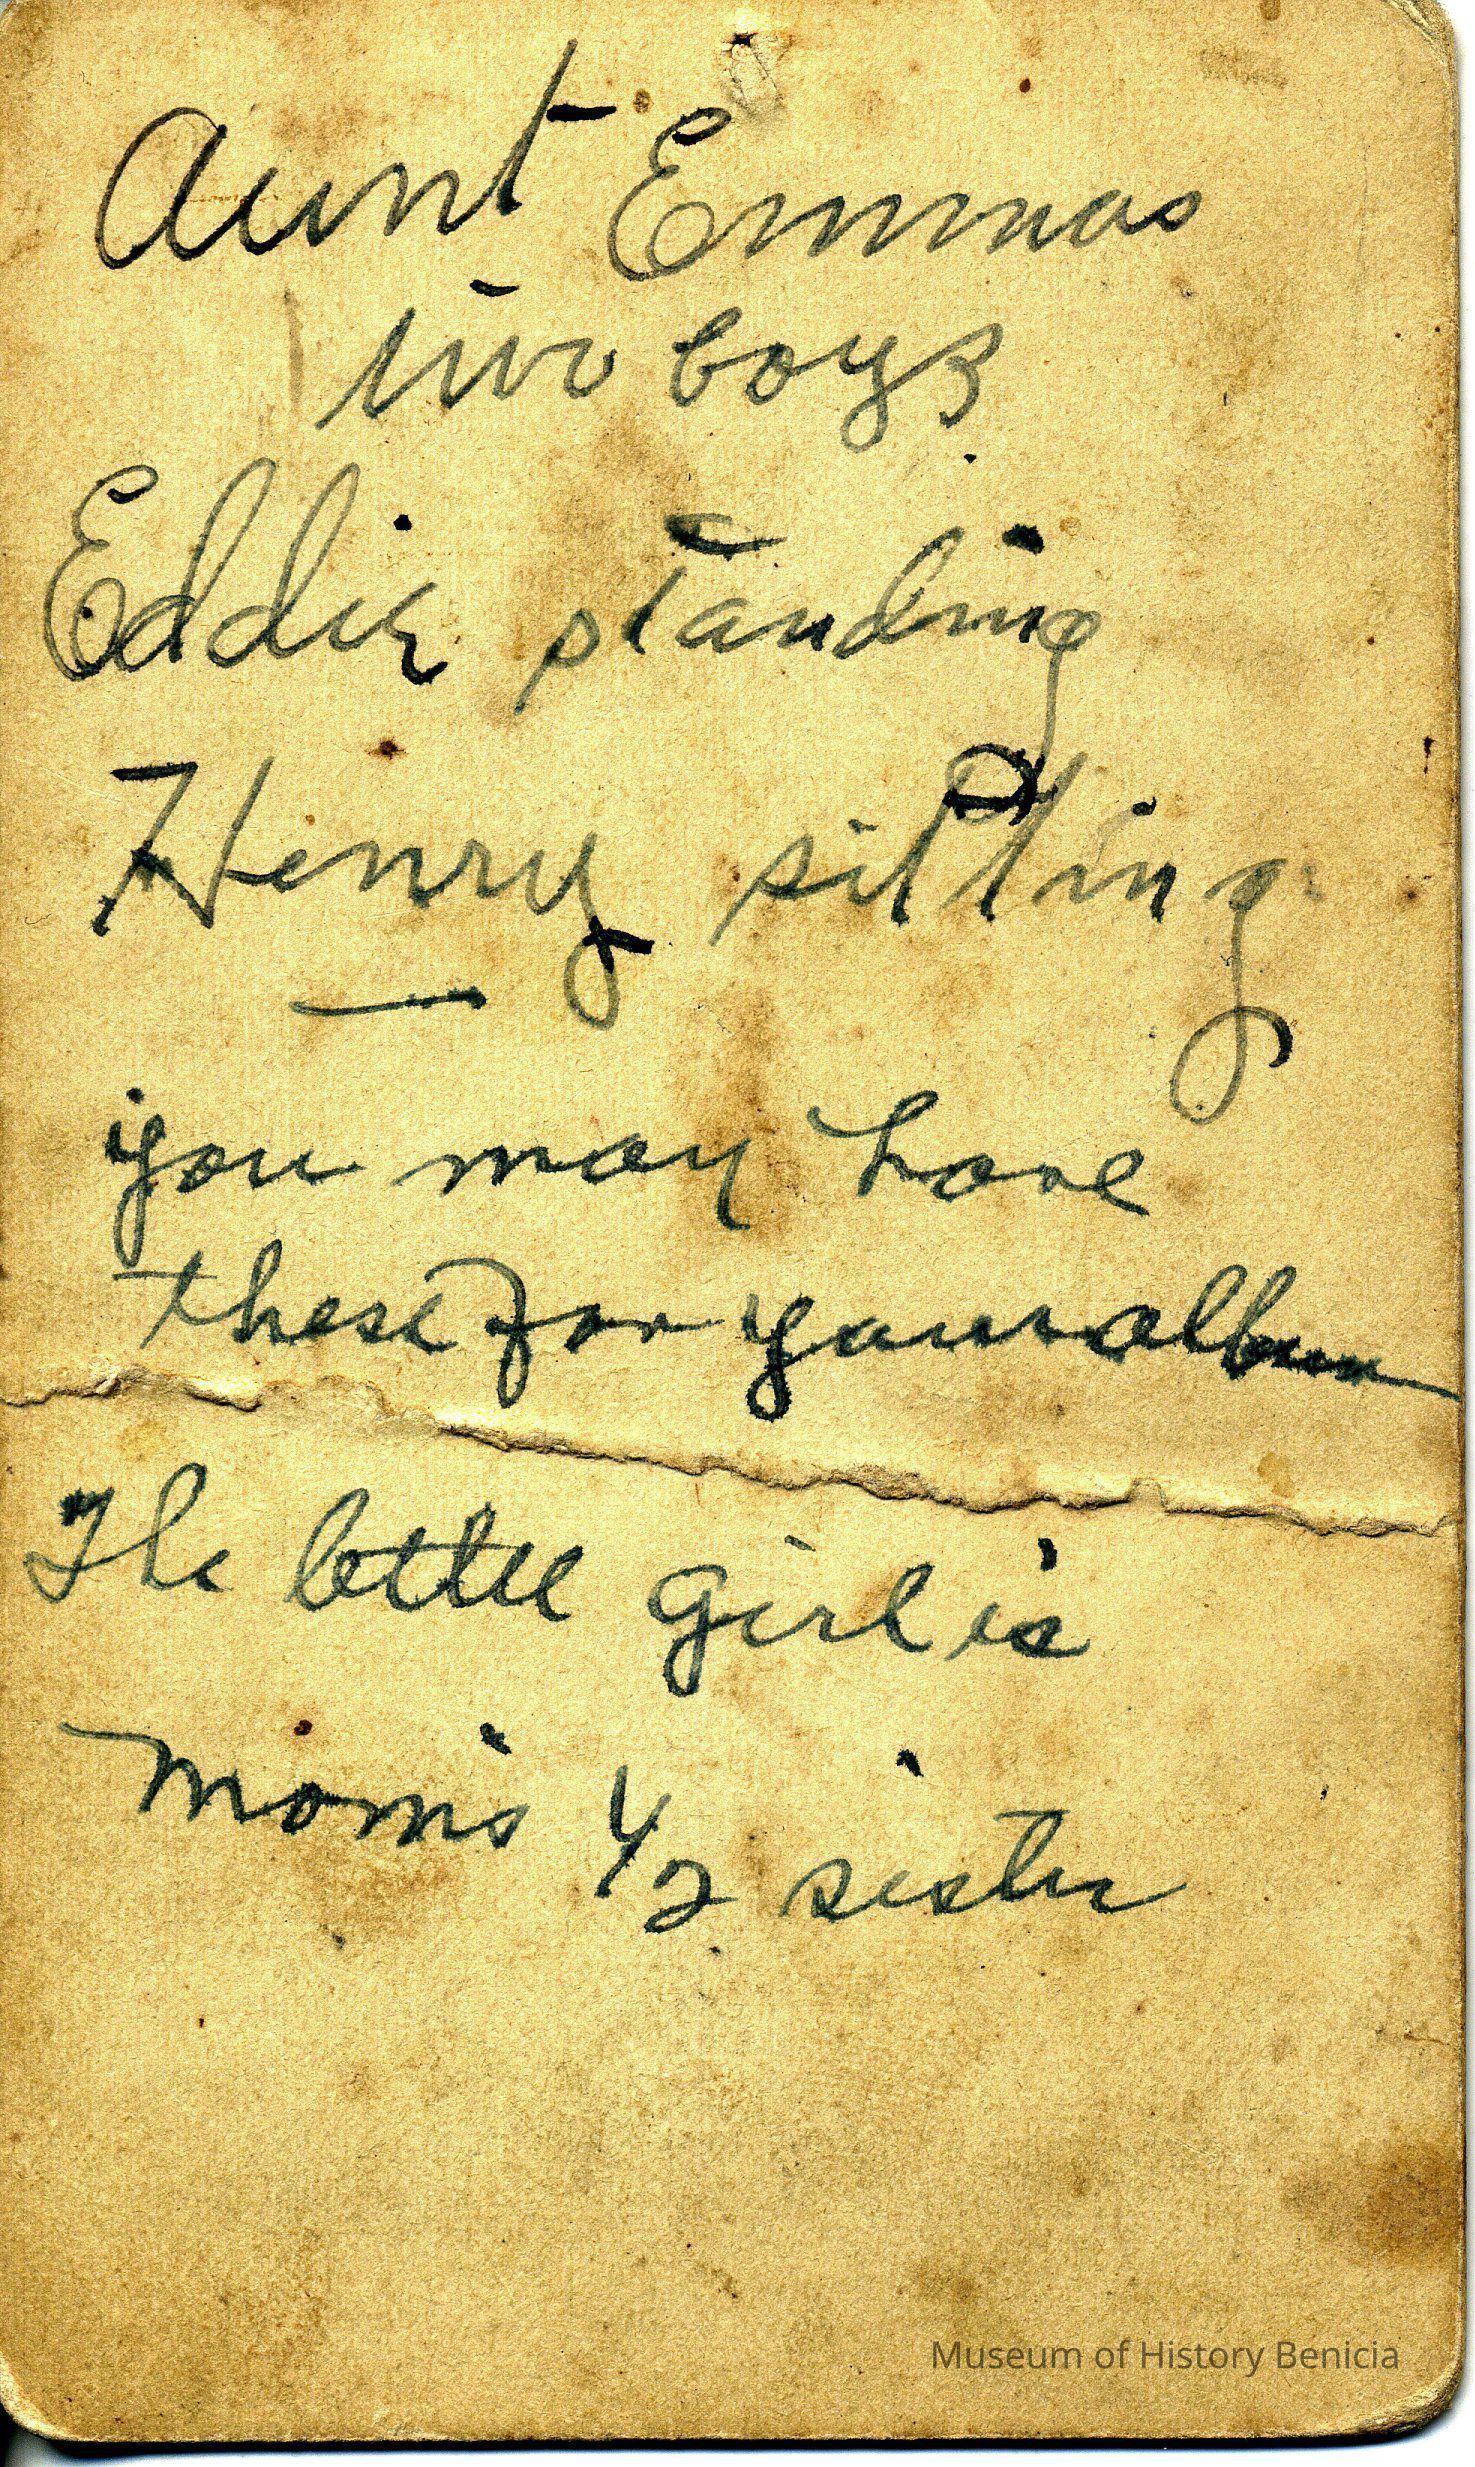 Aunt Emmas
two boys
Eddie standing
Henry sitting
you may have
these for your album
The little girl is
mom's 1/2 sister
Museum of History Benicia